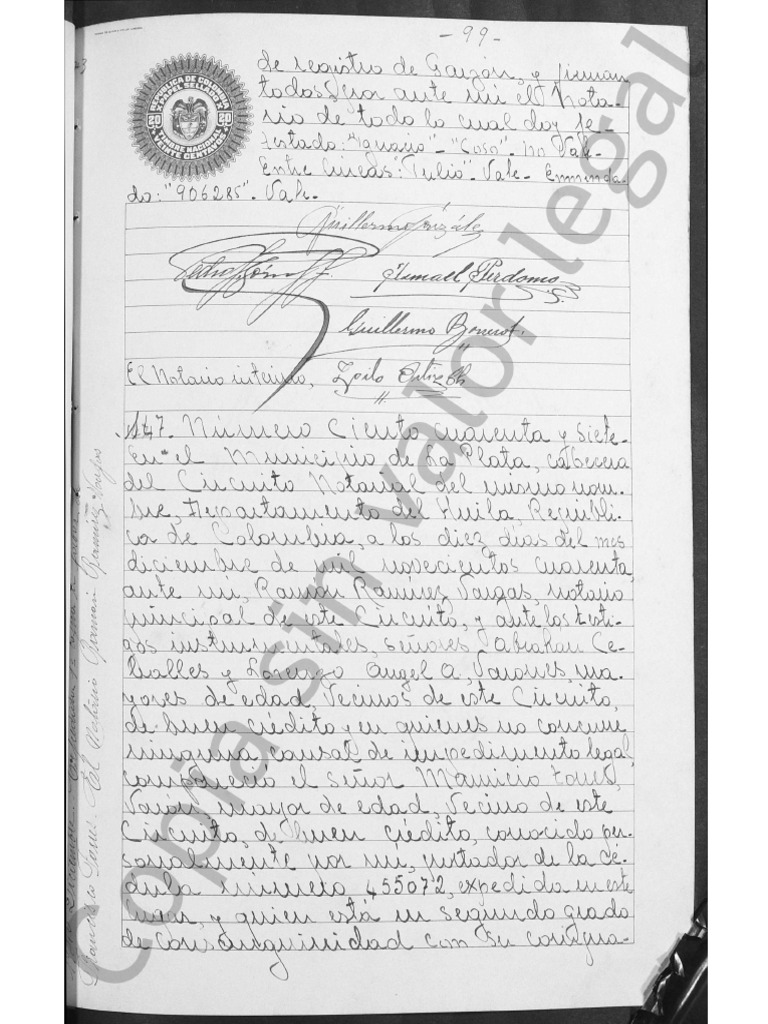 - 99 -
REPUBLICA DE COLOMBIA
PAPEL SELLADO
20 20
TIMBRE NACIONAL
VEINTE CENTAVOS
de registro de Garzón, y firman
todos por ante mi el Nota-
rio de todo lo cual doy fe-
testado: "Ignacio" - "Coso" - no Vale-
Entre lineas: "Tulio" - Vale - Enmenda-
do: "906285" - Vale -
Guillermo González
Pedro Gómez
Ismael Perdomo
Guillermo
El Notario interino,
147. Número Ciento cuarenta y siete-
En el Municipio de La Plata, cabecera
del Circuito Notarial del mismo nom-
bre, Departamento del Huila, Repúbli-
ca de Colombia, a los diez días del mes
diciembre de mil novecientos cuarenta,
ante mi, Ramón Ramírez Vargas, notario
principal de este Circuito, y ante los testi-
gos instrumentales, señores Abrahan Ce-
balles y Lorenzo Angel A, Varones, ma-
yores de edad, Vecinos de este Circuito,
de buen crédito y en quienes no concurre
ninguna causal de impedimento legal,
compareció el señor Mauricio
Varón mayor de edad, Vecino de este
Circuito, de buen crédito, conocido per-
sonalmente por mi, portador de la cé-
dula número 455072, expedida en este
lugar, y quien está en segundo grado
de consanguinidad con su contigua-
Copia sin valor legal
Ramón Ramírez Vargas